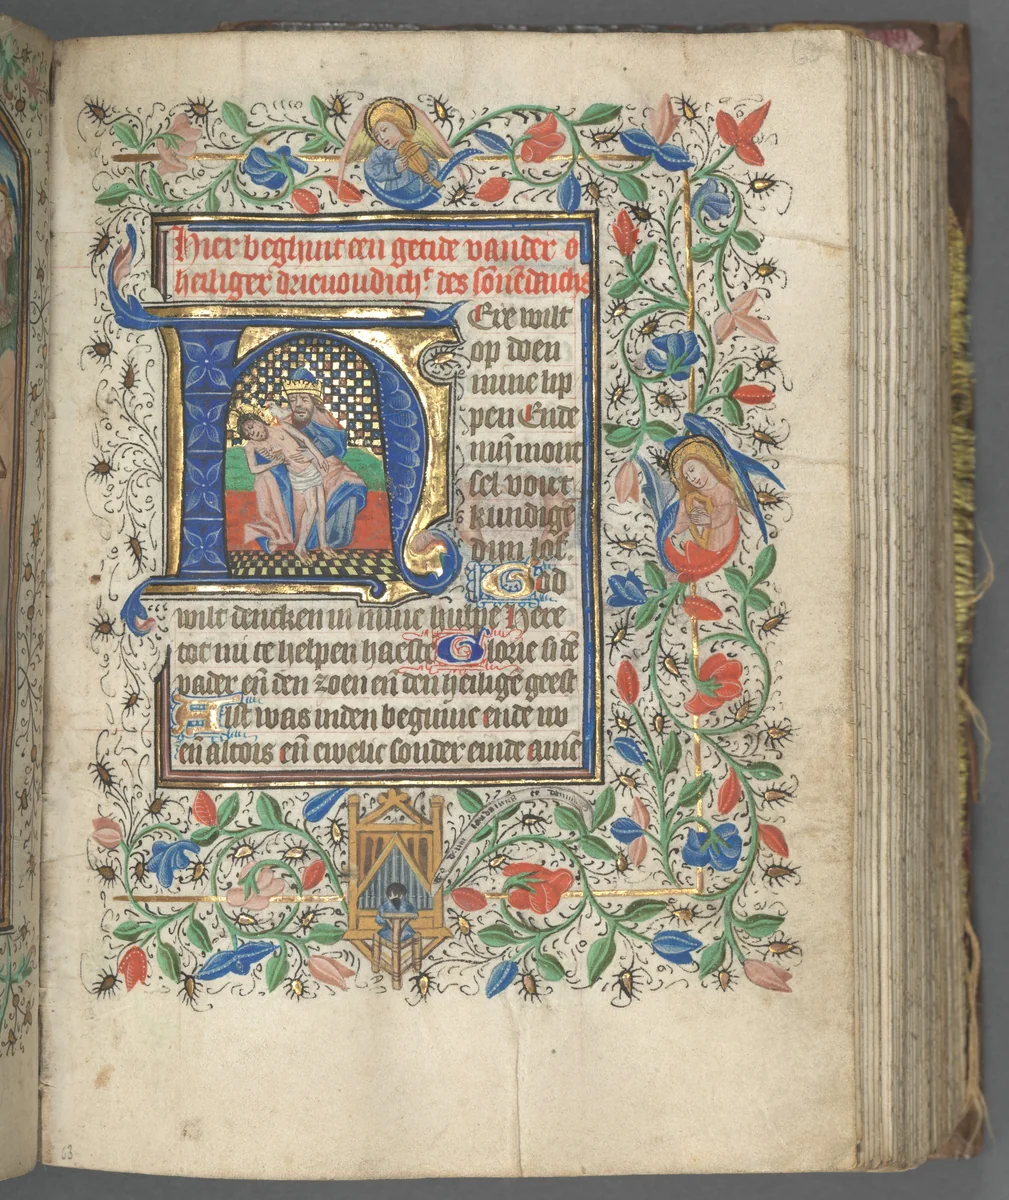 Hier beghint een getide vander
heiliger drievoudich des sonnēdaichs
Ere wilt
op doen
mine lip
pen Ende
mijn mont
sel vort
kundigē
dijn lof
God
wilt dencken in mine hulpe Here
tot mi te helpen haeste Glorie si dē
vader eñ den zoen eñ den heiligē geest
Alst was inden beginne ende nv
eñ altois eñ ewelic sonder einde amē
63